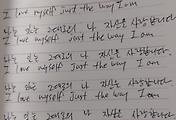 I love myself just the way I am
나는 있는 그대로의 나 자신을 사랑합니다.
I love myself just the way I am
나는 있는 그대로의 나 자신을 사랑합니다.
I love myself just the way I am
나는 있는 그대로의 나 자신을 사랑합니다.
I love myself just the way I am
나는 있는 그대로의 나 자신을 사랑합니다